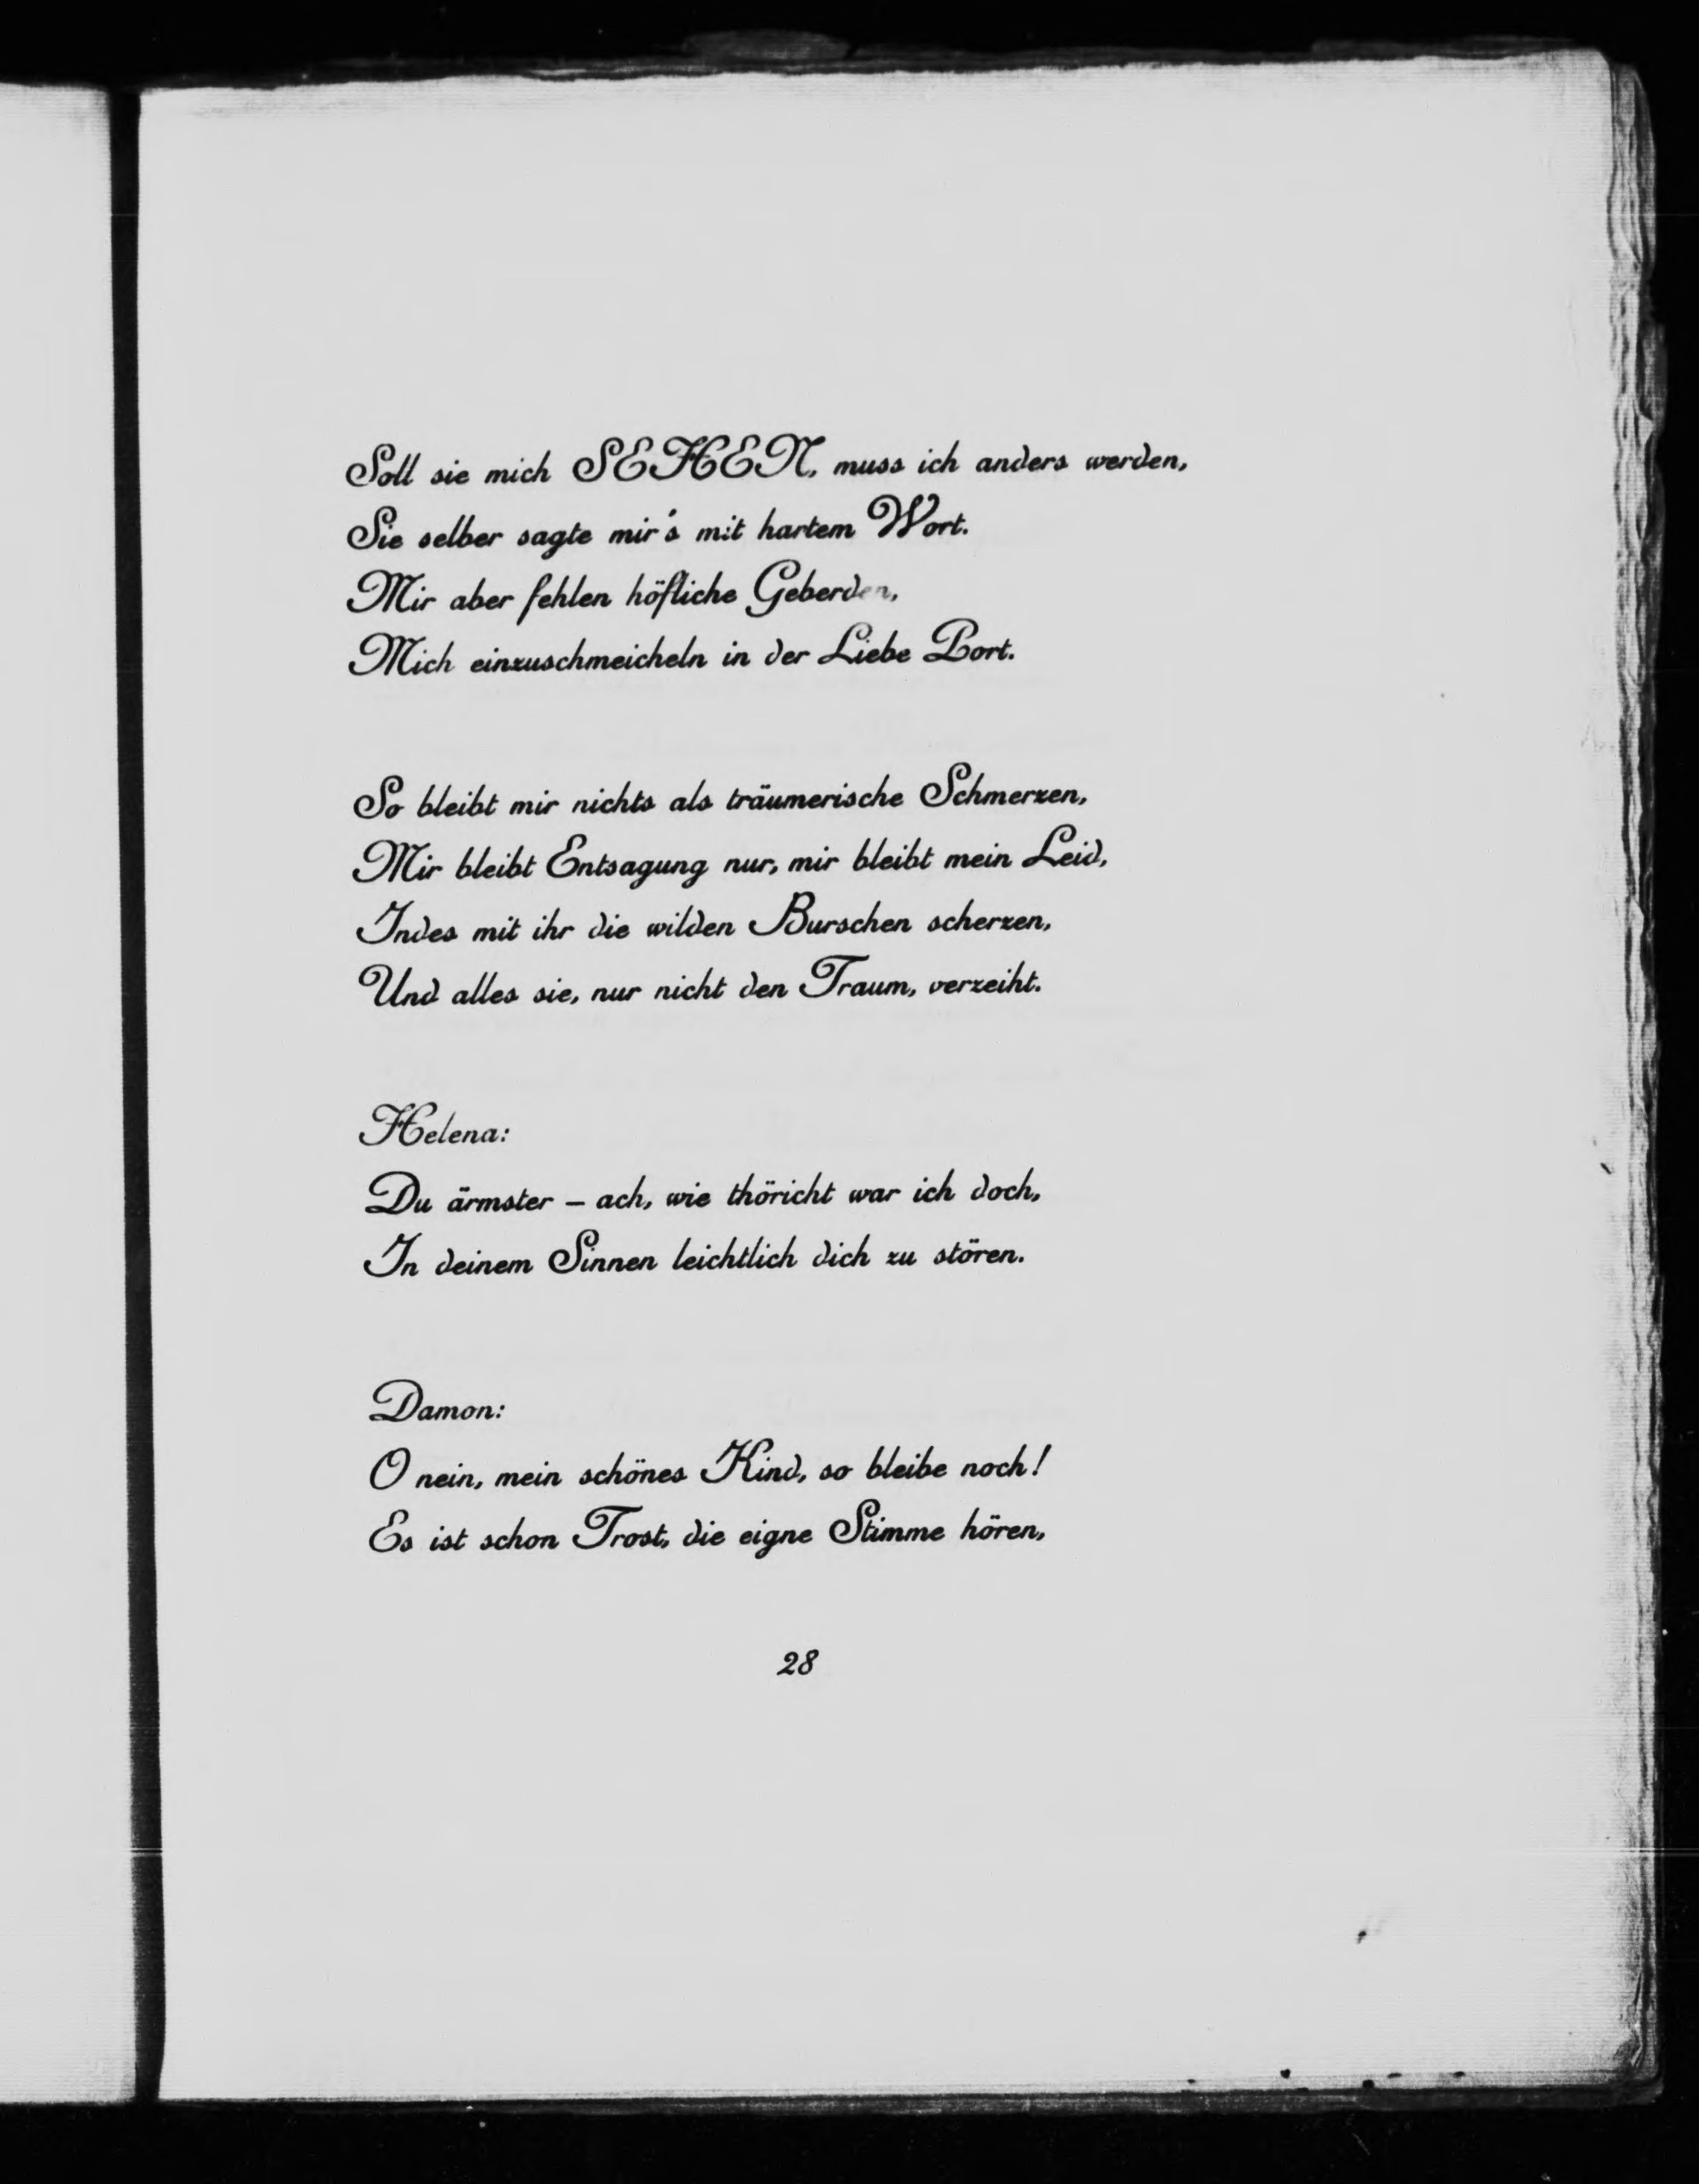 Soll sie mich SEHEN, muss ich anders werden,
Sie selber sagte mir's mit hartem Wort.
Mir aber fehlen höfliche Geberden,
Mich einzuschmeicheln in der Liebe Port.
So bleibt mir nichts als träumerische Schmerzen,
Mir bleibt Entsagung nur, mir bleibt mein Leid,
Indes mit ihr die wilden Burschen scherzen,
Und alles sie, nur nicht den Traum, verzeiht.
Helena:
Du ärmster – ach, wie thöricht war ich doch,
In deinem Sinnen leichtlich dich zu stören.
Damon:
O nein, mein schönes Kind, so bleibe noch!
Es ist schon Trost, die eigne Stimme hören,
28